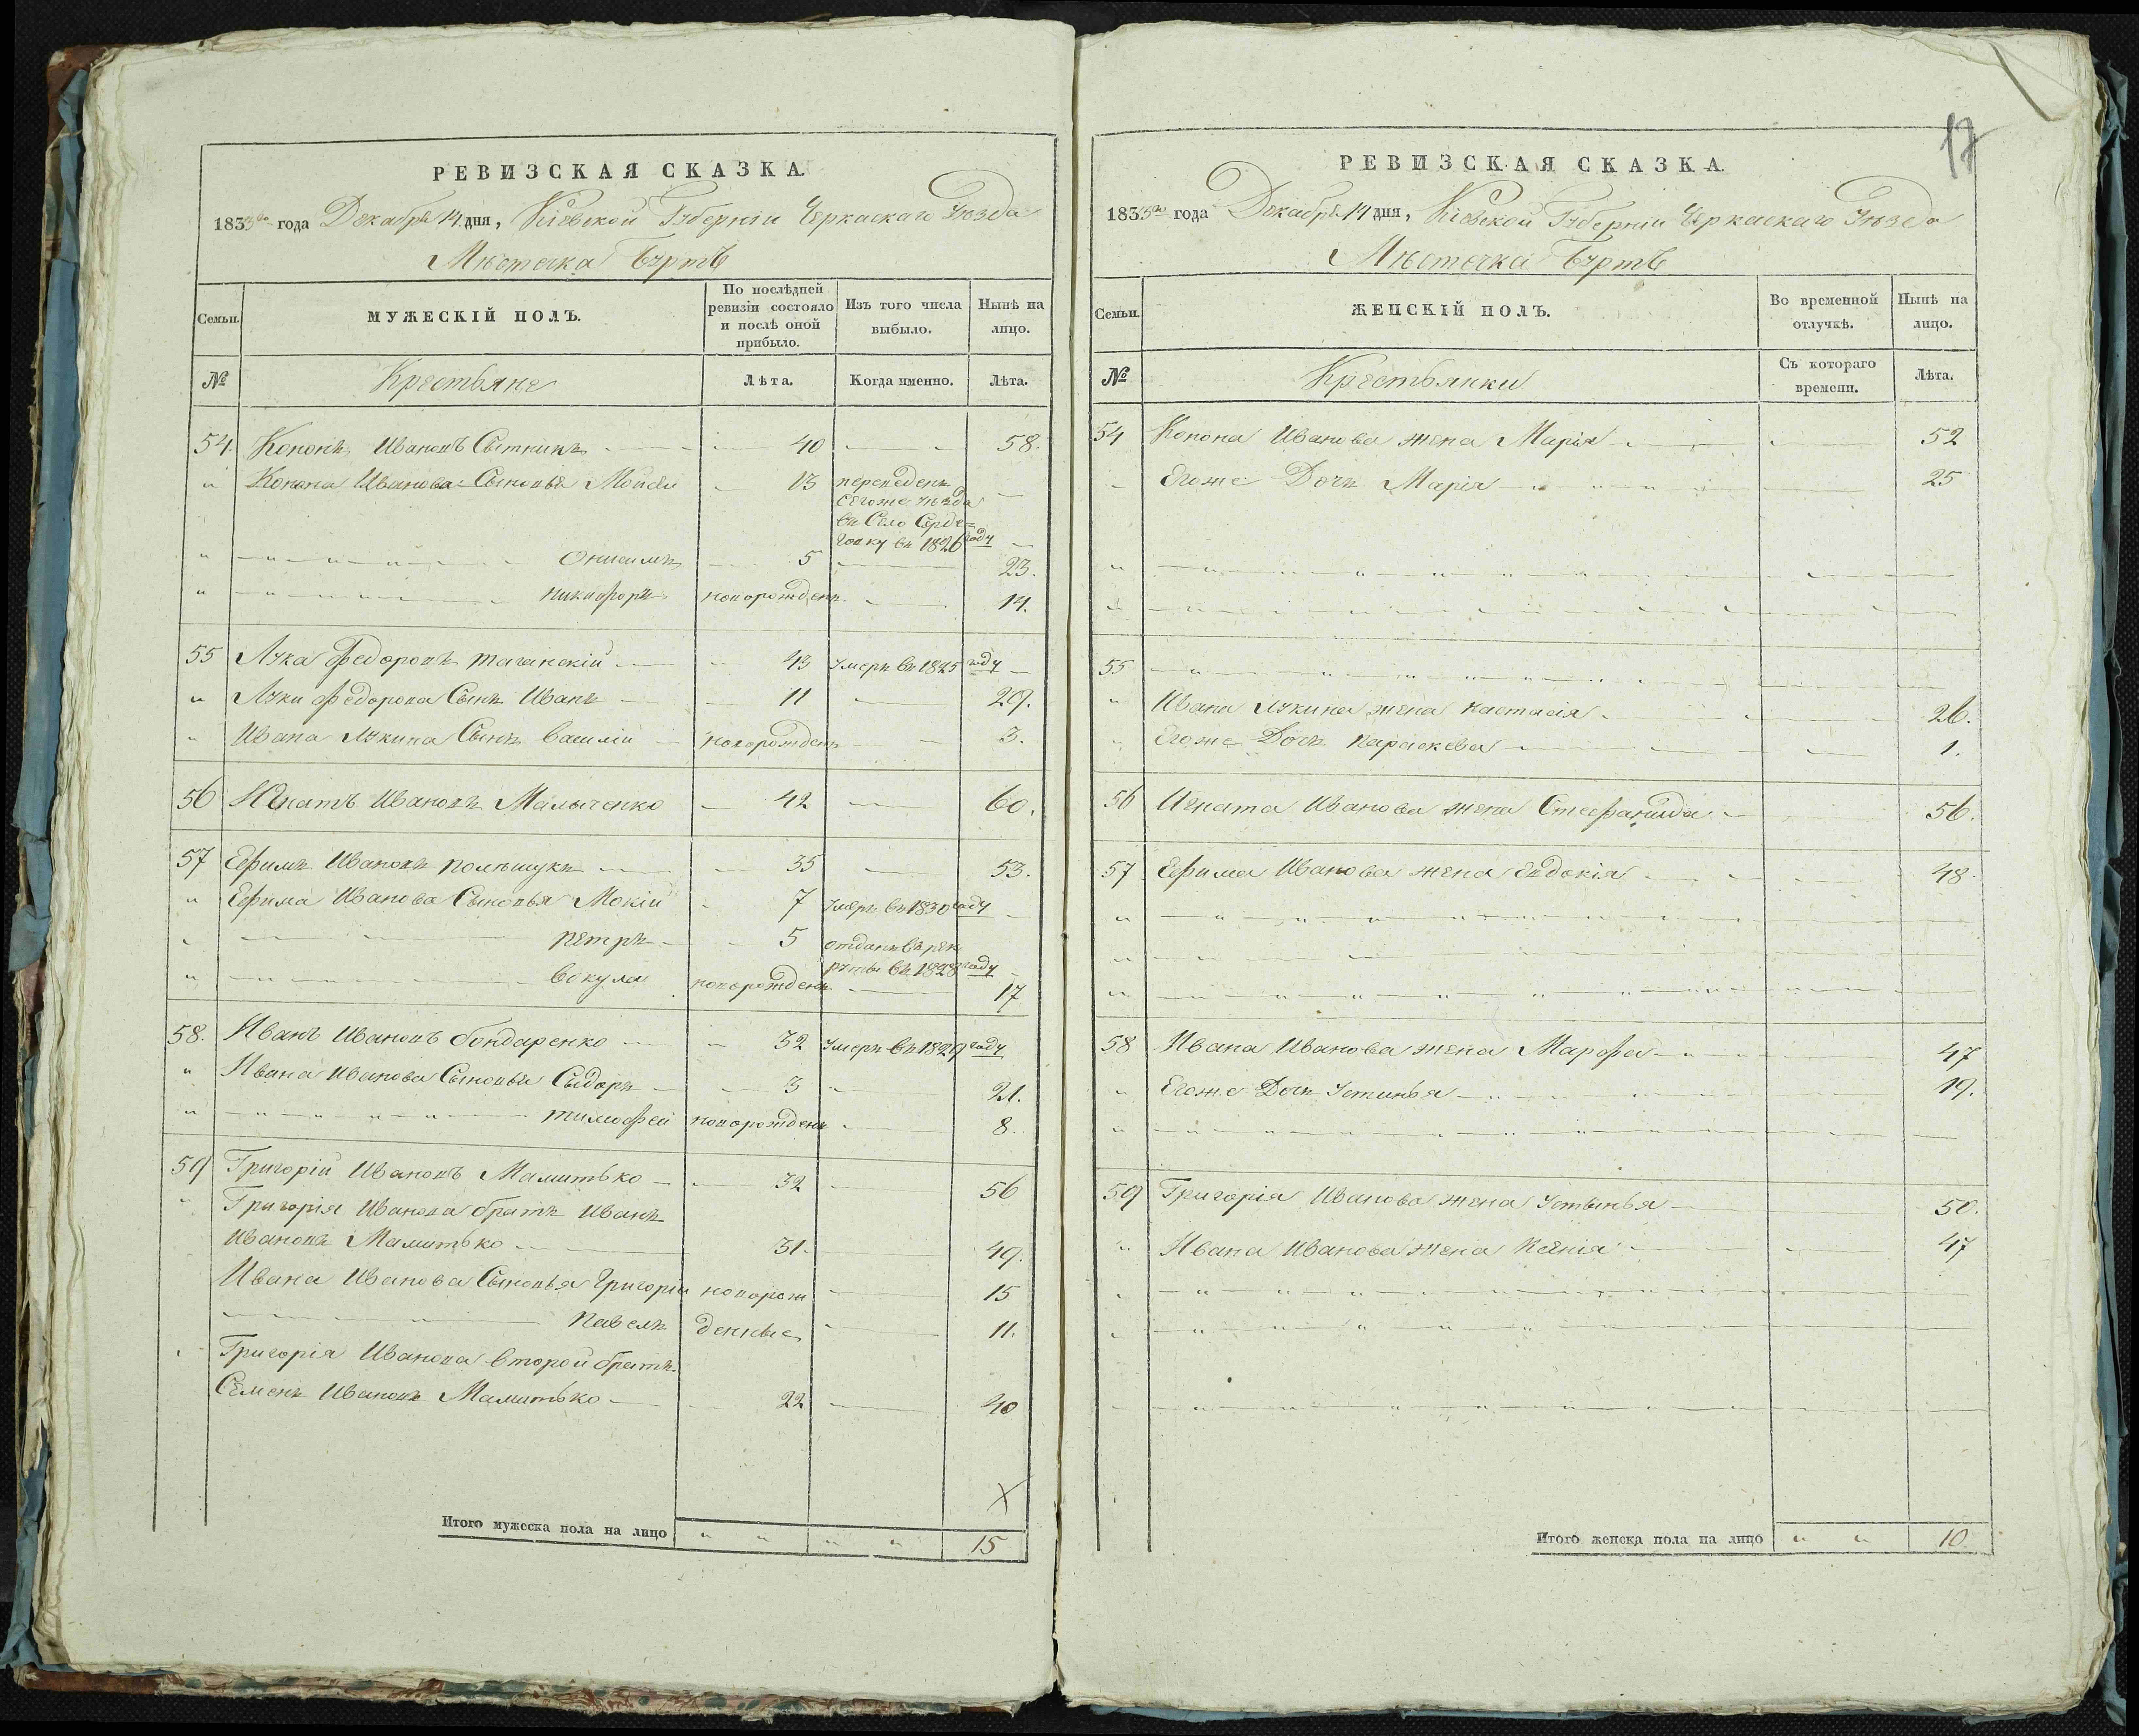 РЕВИЗСКАЯ СКАЗКА.
1833го года Декабря 14 дня, Кіевской Губерніи Черкаскаго Уѣзда
Мѣстечка Буртъ
Семьи. МУЖЕСКІЙ ПОЛЪ. По послѣдней ревизіи состояло и послѣ оной прибыло. Изъ того числа выбыло. Нынѣ на лицо.
№ Крестьяне Лѣта. Когда именно. Лѣта.
54. Кононъ Ивановъ Сытникъ 40 58.
" Конона Иванова Сыновья Моисей 13 переведенъ
сегоже уѣзда
въ Село Серде=
говку въ 1826 году
" Онисимъ 5 23.
" Никифоръ новорожденъ 14.
55 Лука Федоровъ Таганскій 43 умеръ въ 1825 году
" Луки Федорова Сынъ Иванъ 11 29.
" Ивана Лукина Сынъ Василій новорожденъ 3.
56 Игнатъ Ивановъ Малыченко 42 60.
57 Ефимъ Ивановъ Полѣшукъ 35 53.
" Ефима Иванова Сыновья Мокій 7 умеръ въ 1830 году
" Петръ 5 отданъ въ рек
руты въ 1828 году
" Вокула новорожденъ 17
58. Иванъ Ивановъ Бондаренко 32 умеръ въ 1829 году
" Ивана Иванова Сыновья Сыдоръ 3 21.
" Тимофей новорожденъ 8.
59 Григорій Ивановъ Мамитько 32 56
" Григорія Иванова братъ Иванъ
Ивановъ Мамитько 31. 49.
Ивана Иванова Сыновья Григорій новорож 15
Павелъ денные 11.
Григорія Иванова второй братъ
Семенъ Ивановъ Мамитько 22 40
Х
Итого мужеска пола на лицо " " " " 15
17
РЕВИЗСКАЯ СКАЗКА.
1833го года Декабря 14 дня, Кіевской Губерніи Черкаскаго Уѣзда
Мѣстечка Буртъ
Семьи. ЖЕНСКІЙ ПОЛЪ. Во временной отлучкѣ. Нынѣ на лицо.
№ Крестьянки Съ котораго времени. Лѣта.
54 Конона Иванова жена Марія 52
Егоже Дочь Марія 25
55
" Ивана Лукина жена Настасія 26.
Егоже Дочь Параскева 1.
56 Игната Иванова жена Стефанида 56.
57 Ефима Иванова жена Евдокія 48.
58 Ивана Иванова жена Марфа 47
" Егоже Дочь Устинья 19.
59 Григорія Иванова жена Устинья 50.
" Ивана Иванова жена Ксенія 47
Итого женска пола на лицо " " 10